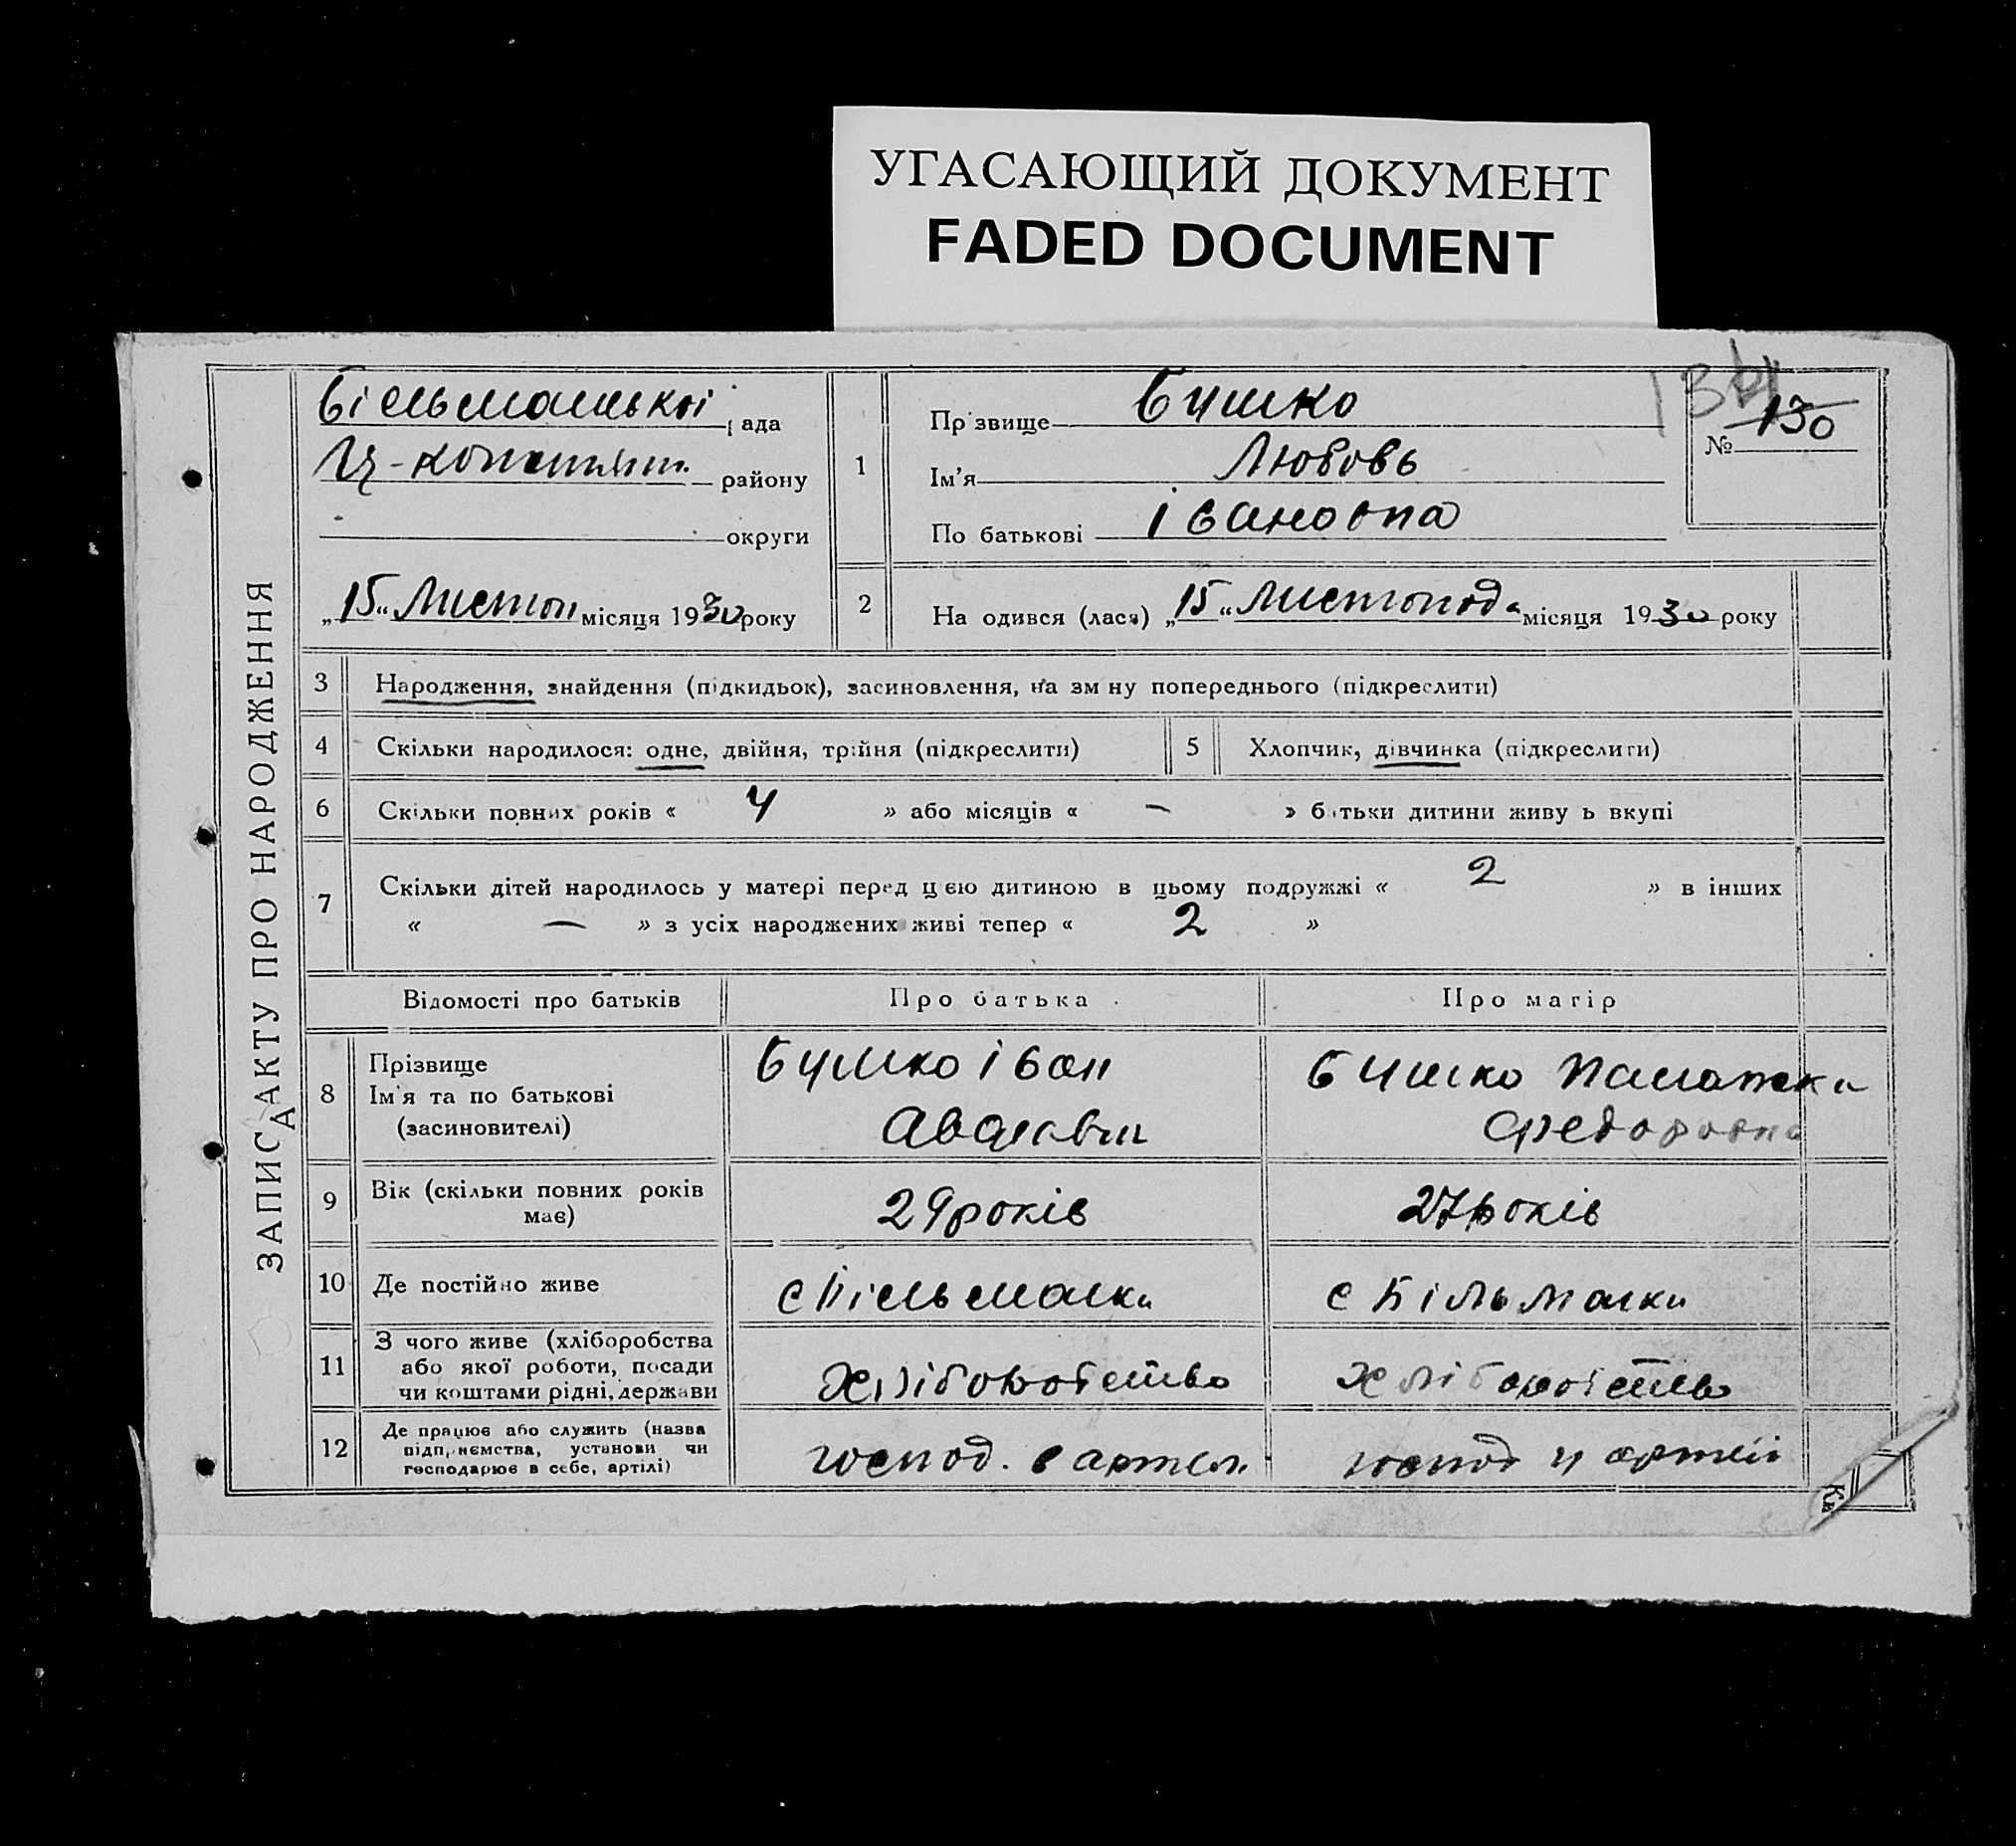 УГАСАЮЩИЙ ДОКУМЕНТ
FADED DOCUMENT
ЗАПИС АКТУ ПРО НАРОДЖЕННЯ
Більмацької рада
району
округи
„15“ Листоп місяця 1930 року
1
Пр звище Бушко
Ім'я Любовь
По батькові Івановна
134
№ 130
2 На одився (лася) „15“ Листопода місяця 1930 року
3 Народження, знайдення (підкидьок), засиновлення, на зм ну попереднього (підкреслити)
4 Скільки народилося: одне, двійня, трійня (підкреслити)
5 Хлопчик, дівчинка (підкреслити)
6 Скільки повних років « 4 » або місяців « — » батьки дитини живу ь вкупі
7 Скільки дітей народилось у матері перед цією дитиною в цьому подружжі « 2 » в інших
« — » з усіх народжених живі тепер « 2 »
Відомості про батьків Про батька Про матір
8 Прізвище
Ім'я та по батькові
(засиновителі)
Бушко Іван
Бушко
Федоровна
9 Вік (скільки повних років
має)
29 років
27 років
10 Де постійно живе
с Більмаки
с Більмаки
11 З чого живе (хліборобства
або якої роботи, посади
чи коштами рідні, держави
хліборобство
хліборобство
12 Де працює або служить (назва
підприємства, установи чи
господарює в себе, артілі)
господ. в артел.
господ у артелі